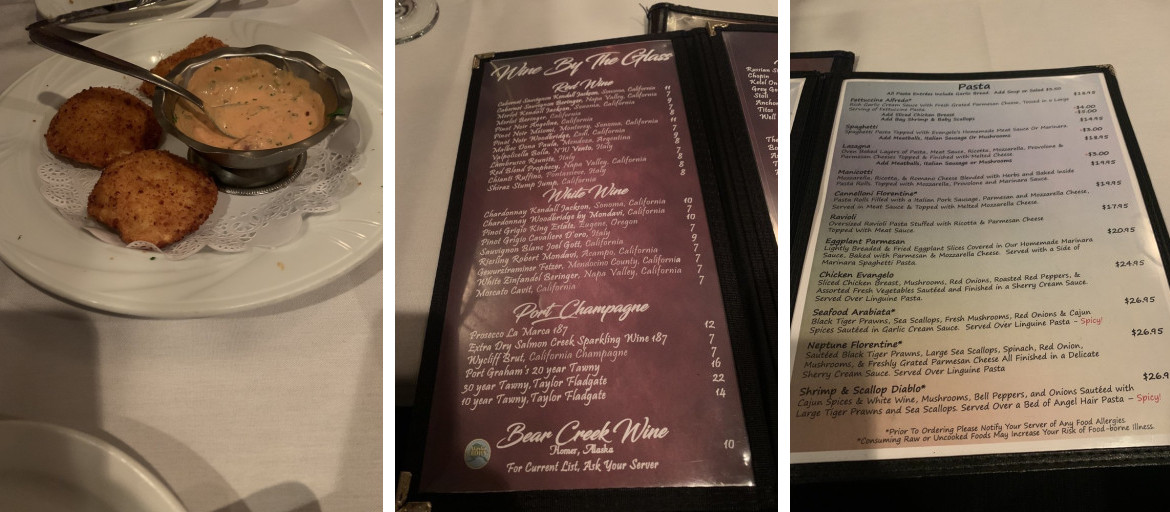 Wine By The Glass
Red Wine
Cabernet Sauvignon Kendall Jackson, Sonoma, California 11
Cabernet Sauvignon Beringer, Napa Valley, California
Merlot Kendall Jackson, Sonoma, California
Merlot Beringer, California
Pinot Noir Angeline, California
Pinot Noir Mirassou, Monterey, Sonoma, California
Pinot Noir Woodbridge, California
Malbec Dona Paula, Mendoza, Argentina
Valpolicella Bolla, Italy
Lambrusco Riunite, Italy
Red Blend Prophecy, Napa Valley, California
Chianti Ruffino, Italy
Shiraz Stump Jump, California 8
White Wine
Chardonnay Kendall Jackson, Sonoma, California 10
Chardonnay Woodbridge by Mondavi, California 7
Pinot Grigio King Estate, Eugene, Oregon 10
Pinot Grigio Cavaliere D'oro, Italy 7
Sauvignon Blanc Joel Gott, California 9
Riesling Robert Mondavi, Acampo, California 7
Gewurztraminer Fetzer, Mendocino County, California 8
White Zinfandel Beringer, Napa Valley, California 7
Moscato Cavit, California 7
Port Champagne
Prosecco La Marca 187 12
Extra Dry Salmon Creek Sparkling Wine 187 7
Wycliff Brut, California Champagne 7
Port Graham's 20 year Tawny 16
30 year Tawny, Taylor Fladgate 22
10 year Tawny, Taylor Fladgate 14
Bear Creek Wine 10
Homer, Alaska
For Current List, Ask Your Server
Pasta
All Pasta Entrées Include Garlic Bread Add Soup or Salad $5.00
Fettuccine Alfredo* $16.95
Rich Garlic Cream Sauce With Fresh Grated Parmesan Cheese, Tossed in a Large
Serving of Fettuccine Pasta.
Add Sliced Chicken Breast ~4.00
Add Bay Shrimp & Baby Scallops ~5.00
Spaghetti $14.95
Spaghetti Pasta Topped with Evangelo's Homemade Meat Sauce Or Marinara
Add Meatballs, Italian Sausage or Mushrooms ~3.00
Lasagna $18.95
Oven Baked Layers of Pasta, Meat Sauce, Ricotta, Mozzarella, Provolone &
Parmesan Cheeses Topped & Finished with Melted Cheese
Add Meatballs, Italian Sausage or Mushrooms ~3.00
Manicotti $19.95
Mozzarella, Ricotta, & Romano Cheese Blended with Herbs and Baked Inside
Pasta Rolls, Topped with Mozzarella, Provolone and Marinara Sauce.
Cannelloni Florentine* $19.95
Pasta Rolls Filled with a Italian Pork Sausage, Parmesan and Mozzarella Cheese,
Served in Meat Sauce & Topped with Melted Mozzarella Cheese.
Ravioli $17.95
Oversized Ravioli Pasta Stuffed with Ricotta & Parmesan Cheese
Topped With Meat Sauce.
Eggplant Parmesan $20.95
Lightly Breaded & Fried Eggplant Slices Covered in Our Homemade Marinara
Sauce, Baked with Parmesan & Mozzarella Cheese. Served with a Side of
Marinara Spaghetti Pasta.
Chicken Evangelo $24.95
Sliced Chicken Breast, Mushrooms, Red Onions, Roasted Red Peppers, &
Assorted Fresh Vegetables Sautéed and Finished in a Sherry Cream Sauce.
Served Over Linguine Pasta.
Seafood Arabiata* $26.95
Black Tiger Prawns, Sea Scallops, Fresh Mushrooms, Red Onions & Cajun
Spices Sautéed in Garlic Cream Sauce. Served Over Linguine Pasta ~ Spicy!
Neptune Florentine* $26.95
Sautéed Black Tiger Prawns, Large Sea Scallops, Spinach, Red Onion,
Mushrooms, & Freshly Grated Parmesan Cheese All Finished in a Delicate
Sherry Cream Sauce. Served Over Linguine Pasta
Shrimp & Scallop Diablo* $26.9
Cajun Spices & White Wine, Mushrooms, Bell Peppers, and Onions Sautéed with
Large Tiger Prawns and Sea Scallops. Served Over a Bed of Angel Hair Pasta ~ Spicy!
*Prior To Ordering Please Notify Your Server of Any Food Allergies.
*Consuming Raw or Uncooked Foods May Increase Your Risk of Food-borne Illness.